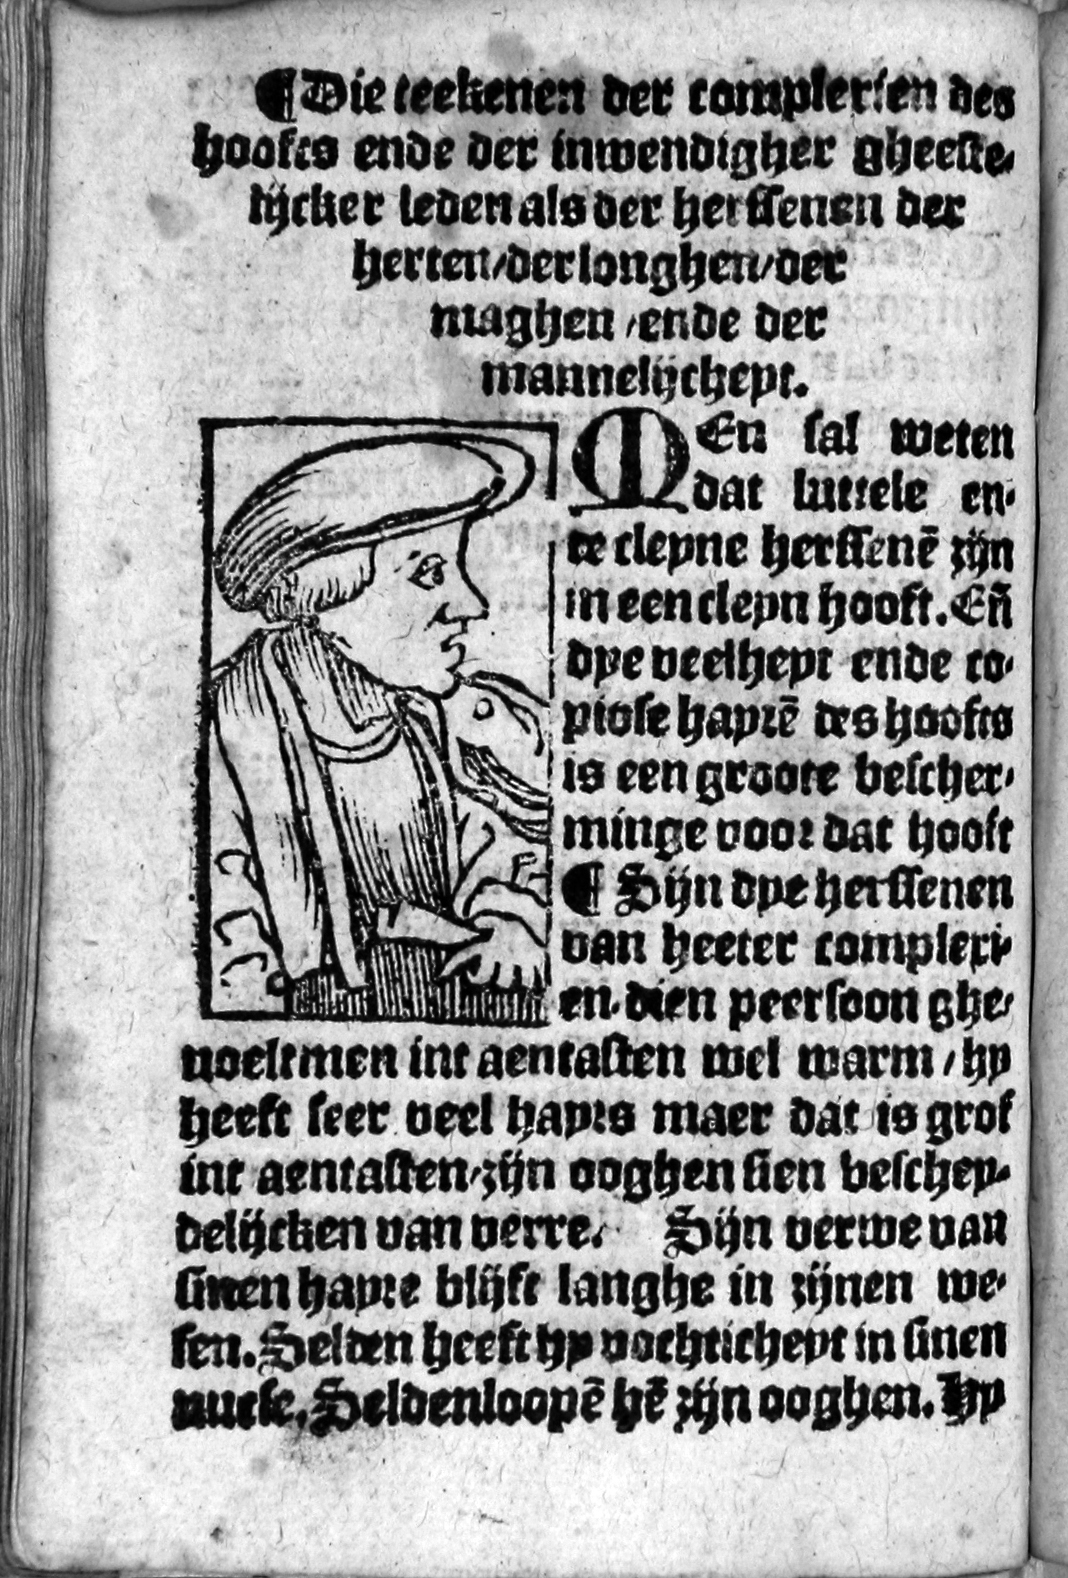 ¶ Die teekenen der complexien des
hoofts ende der inwendigher gheeste-
lijcker leden als der herssenen der
herten/der longhen/der
maghen/ende der
mannelijcheyt.
MEn sal weten
dat luttele en-
de cleyne herssenē zijn
in een cleyn hooft. Eñ
dye veelheyt ende co-
piose hayrē des hoofts
is een groote bescher-
minge voor dat hooft
¶ Sijn dye herssenen
van heeter complexi-
en. dien peersoon ghe-
voeltmen int aentasten wel warm/hy
heeft seer veel hayrs maer dat is grof
int aentasten/zijn ooghen sien beschey-
delijcken van verre. Sijn verwe van
sinen hayre blijft langhe in zijnen we-
sen. Selden heeft hy vochticheyt in sinen
nuese. Selden loopē hē zijn ooghen. Hy